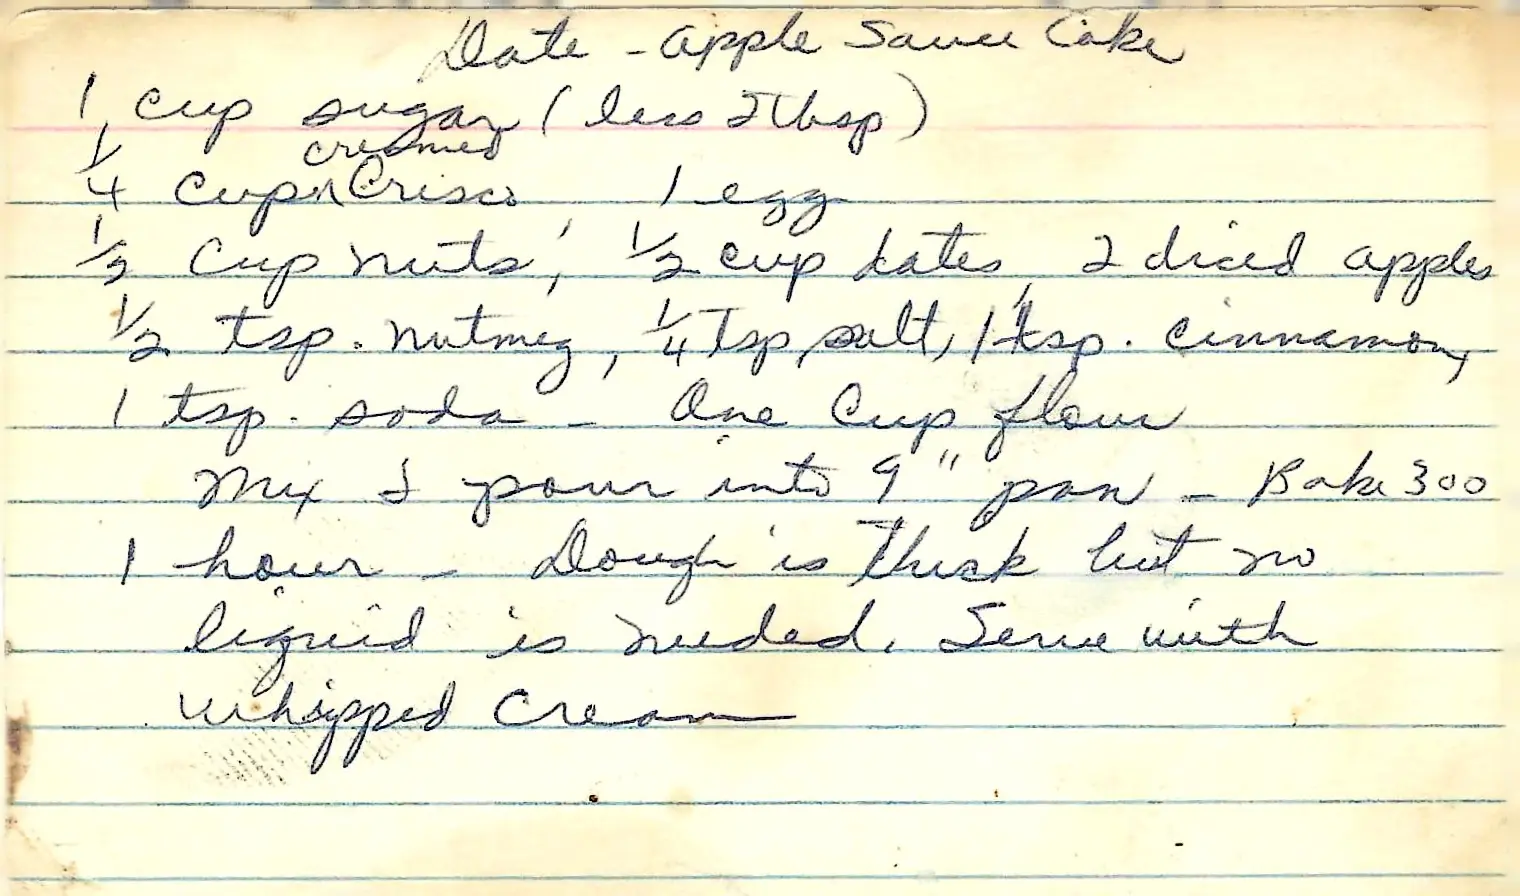 Date - Apple Sauce Cake
1 cup sugar (less 2 Tbsp)
1/4 cup creamed Crisco 1 egg
1/2 Cup nuts, 1/2 cup dates, 2 diced apples
1/2 tsp. nutmeg, 1/4 Tsp salt, 1 tsp. cinnamon,
1 tsp. soda - One Cup flour
Mix & pour into 9" pan - Bake 300
1 hour - Dough is thick but no
liquid is needed. Serve with
whipped cream